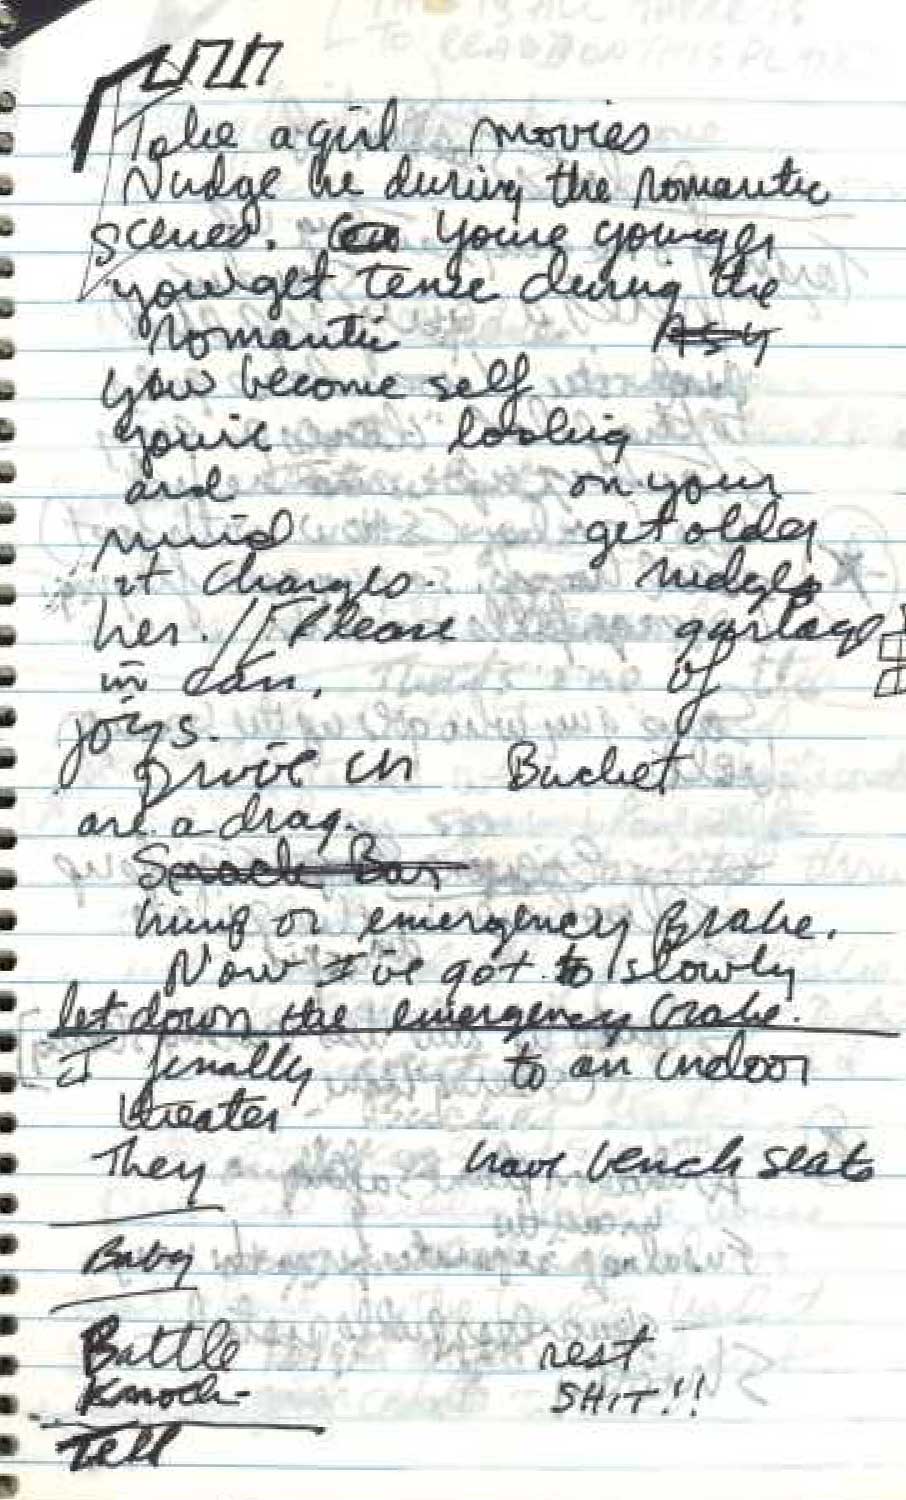 Take a girl movies
Nudge he during the romantic
scenes. Youre younger
you get tense during the
romantic
you become self
you're looking
and on your
mind get older
it changes. nudges
her. // [Please garbage
in can. of
joys.
Drive in Bucket
are a drag.
Snack Bar
hung or emergency Brake.
Now I've got to slowly
let down the emergency brake.
I finally to an indoor
theater
They have bench seats
Baby
Battle rest
Knock SHIT!!
Tell